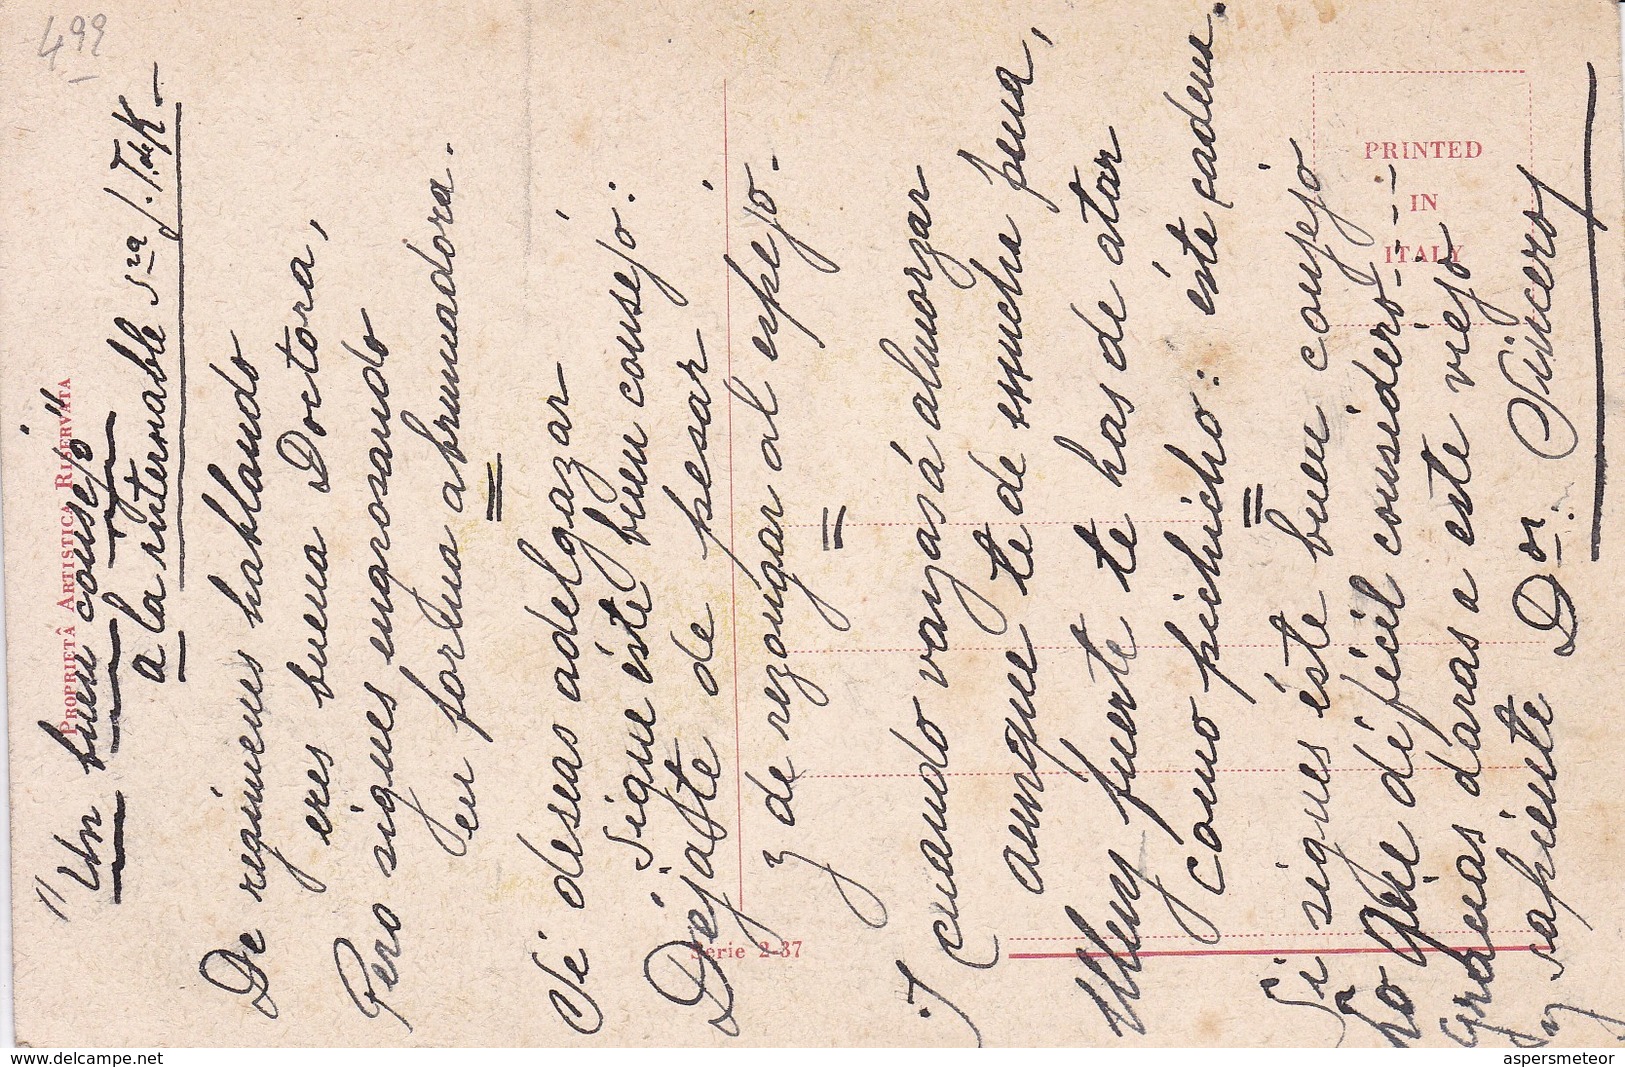 499
PROPRIETÂ ARTISTICA RISERVATA
"Un buen consejo"
a la internable Sra J. T. de K-
De regimenes hablando
eres buena Doctora,
Pero sigues engrosando
en forma abrumadora.
=
Si deseas adelgazar
sigue éste buen consejo:
Dejaste de pesar
y de rezongar al espejo.
=
Y cuando vayas á almorzar
aunque te de mucha pena,
Muy fuerte te has de atar
como pichicho: éste cadena.
=
Si sigues éste buen consejo
lo que dificil considero---
Gracias daras a este viejo
y sapiente Dor. Sinceroy
Serie 2-37
PRINTED
IN
ITALY
delcampe.net
aspersmeteor